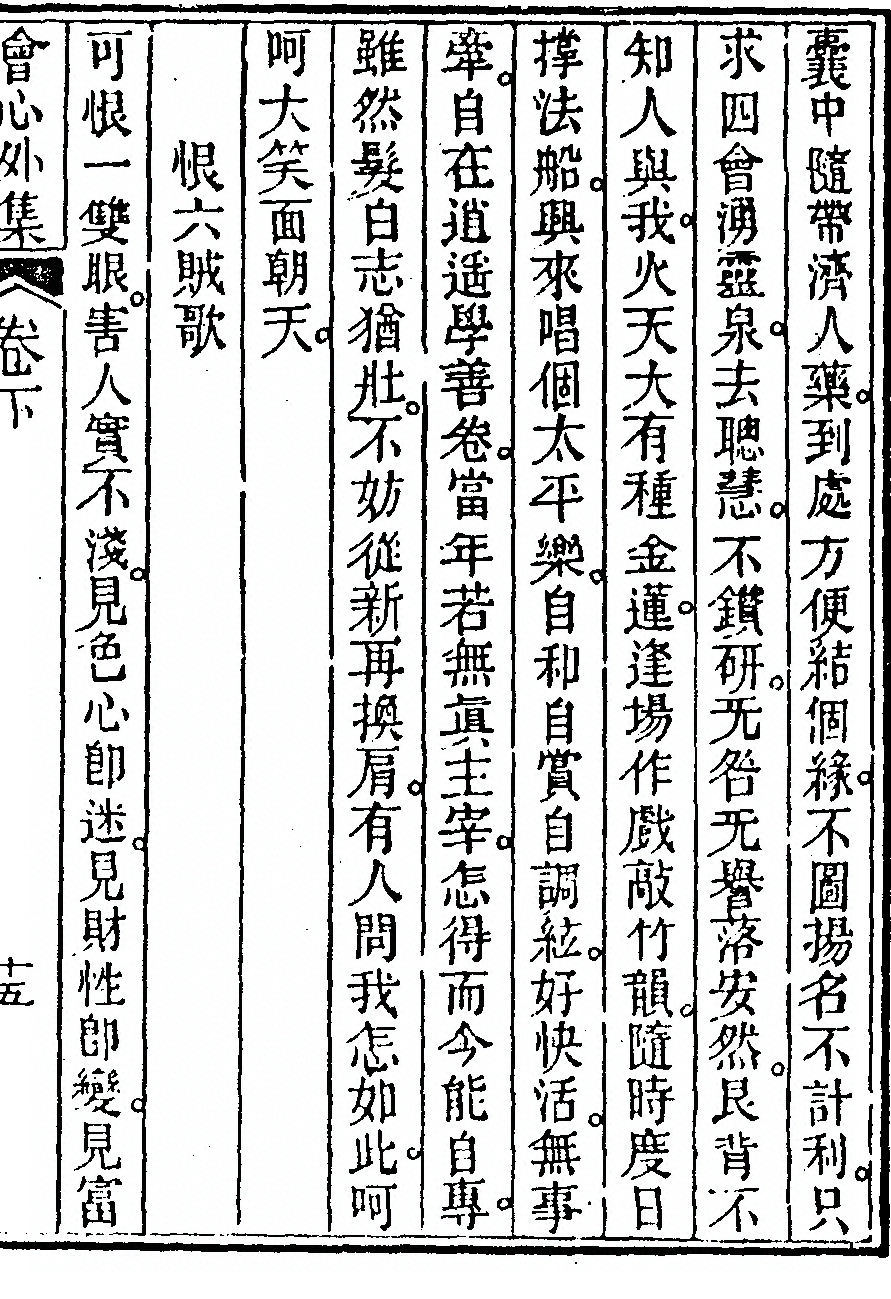 囊中隨帶濟人藥。到處方便結個緣。不圖揚名不計利。只
求四會湧靈泉。去聰慧。不鑽研。旡咎旡譽落安然。艮背不
知人與我。火天大有種金蓮。逢場作戲敲竹韻。隨時度日
撐法船。興來唱個太平樂。自和自賞自調絃。好快活。無事
牽。自在逍遙學善卷。當年若無眞主宰。怎得而今能自專。
雖然髮白志猶壯。不妨從新再換肩。有人問我怎如此。呵
呵大笑面朝天。
恨六賊歌
可恨一雙眼。害人實不淺。見色心卽迷。見財性卽變。見富
會心外集 卷下 十五